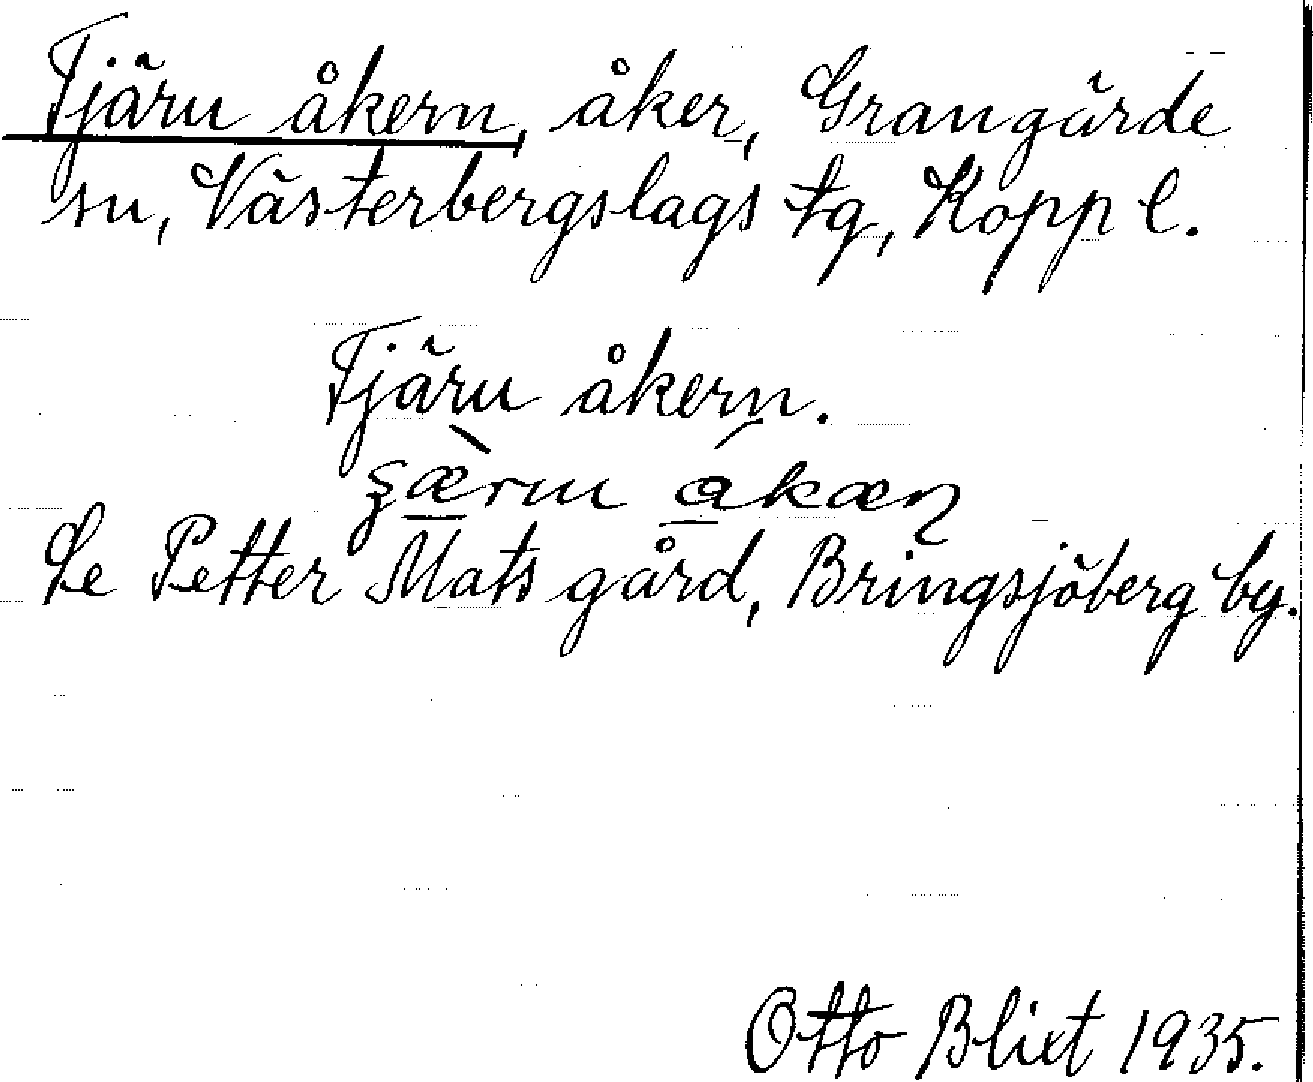 Tjäru åkern, åker, Grangärde
sn, Västerbergslags tg, Kopp l.
Tjäru åkern.
Se Petter Mats gård, Bringsjöberg by.
Otto Blixt 1935.